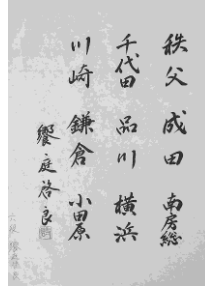 秩父 成田 南房総
千代田 品川 横浜
川崎 鎌倉 小田原
饗庭啓良